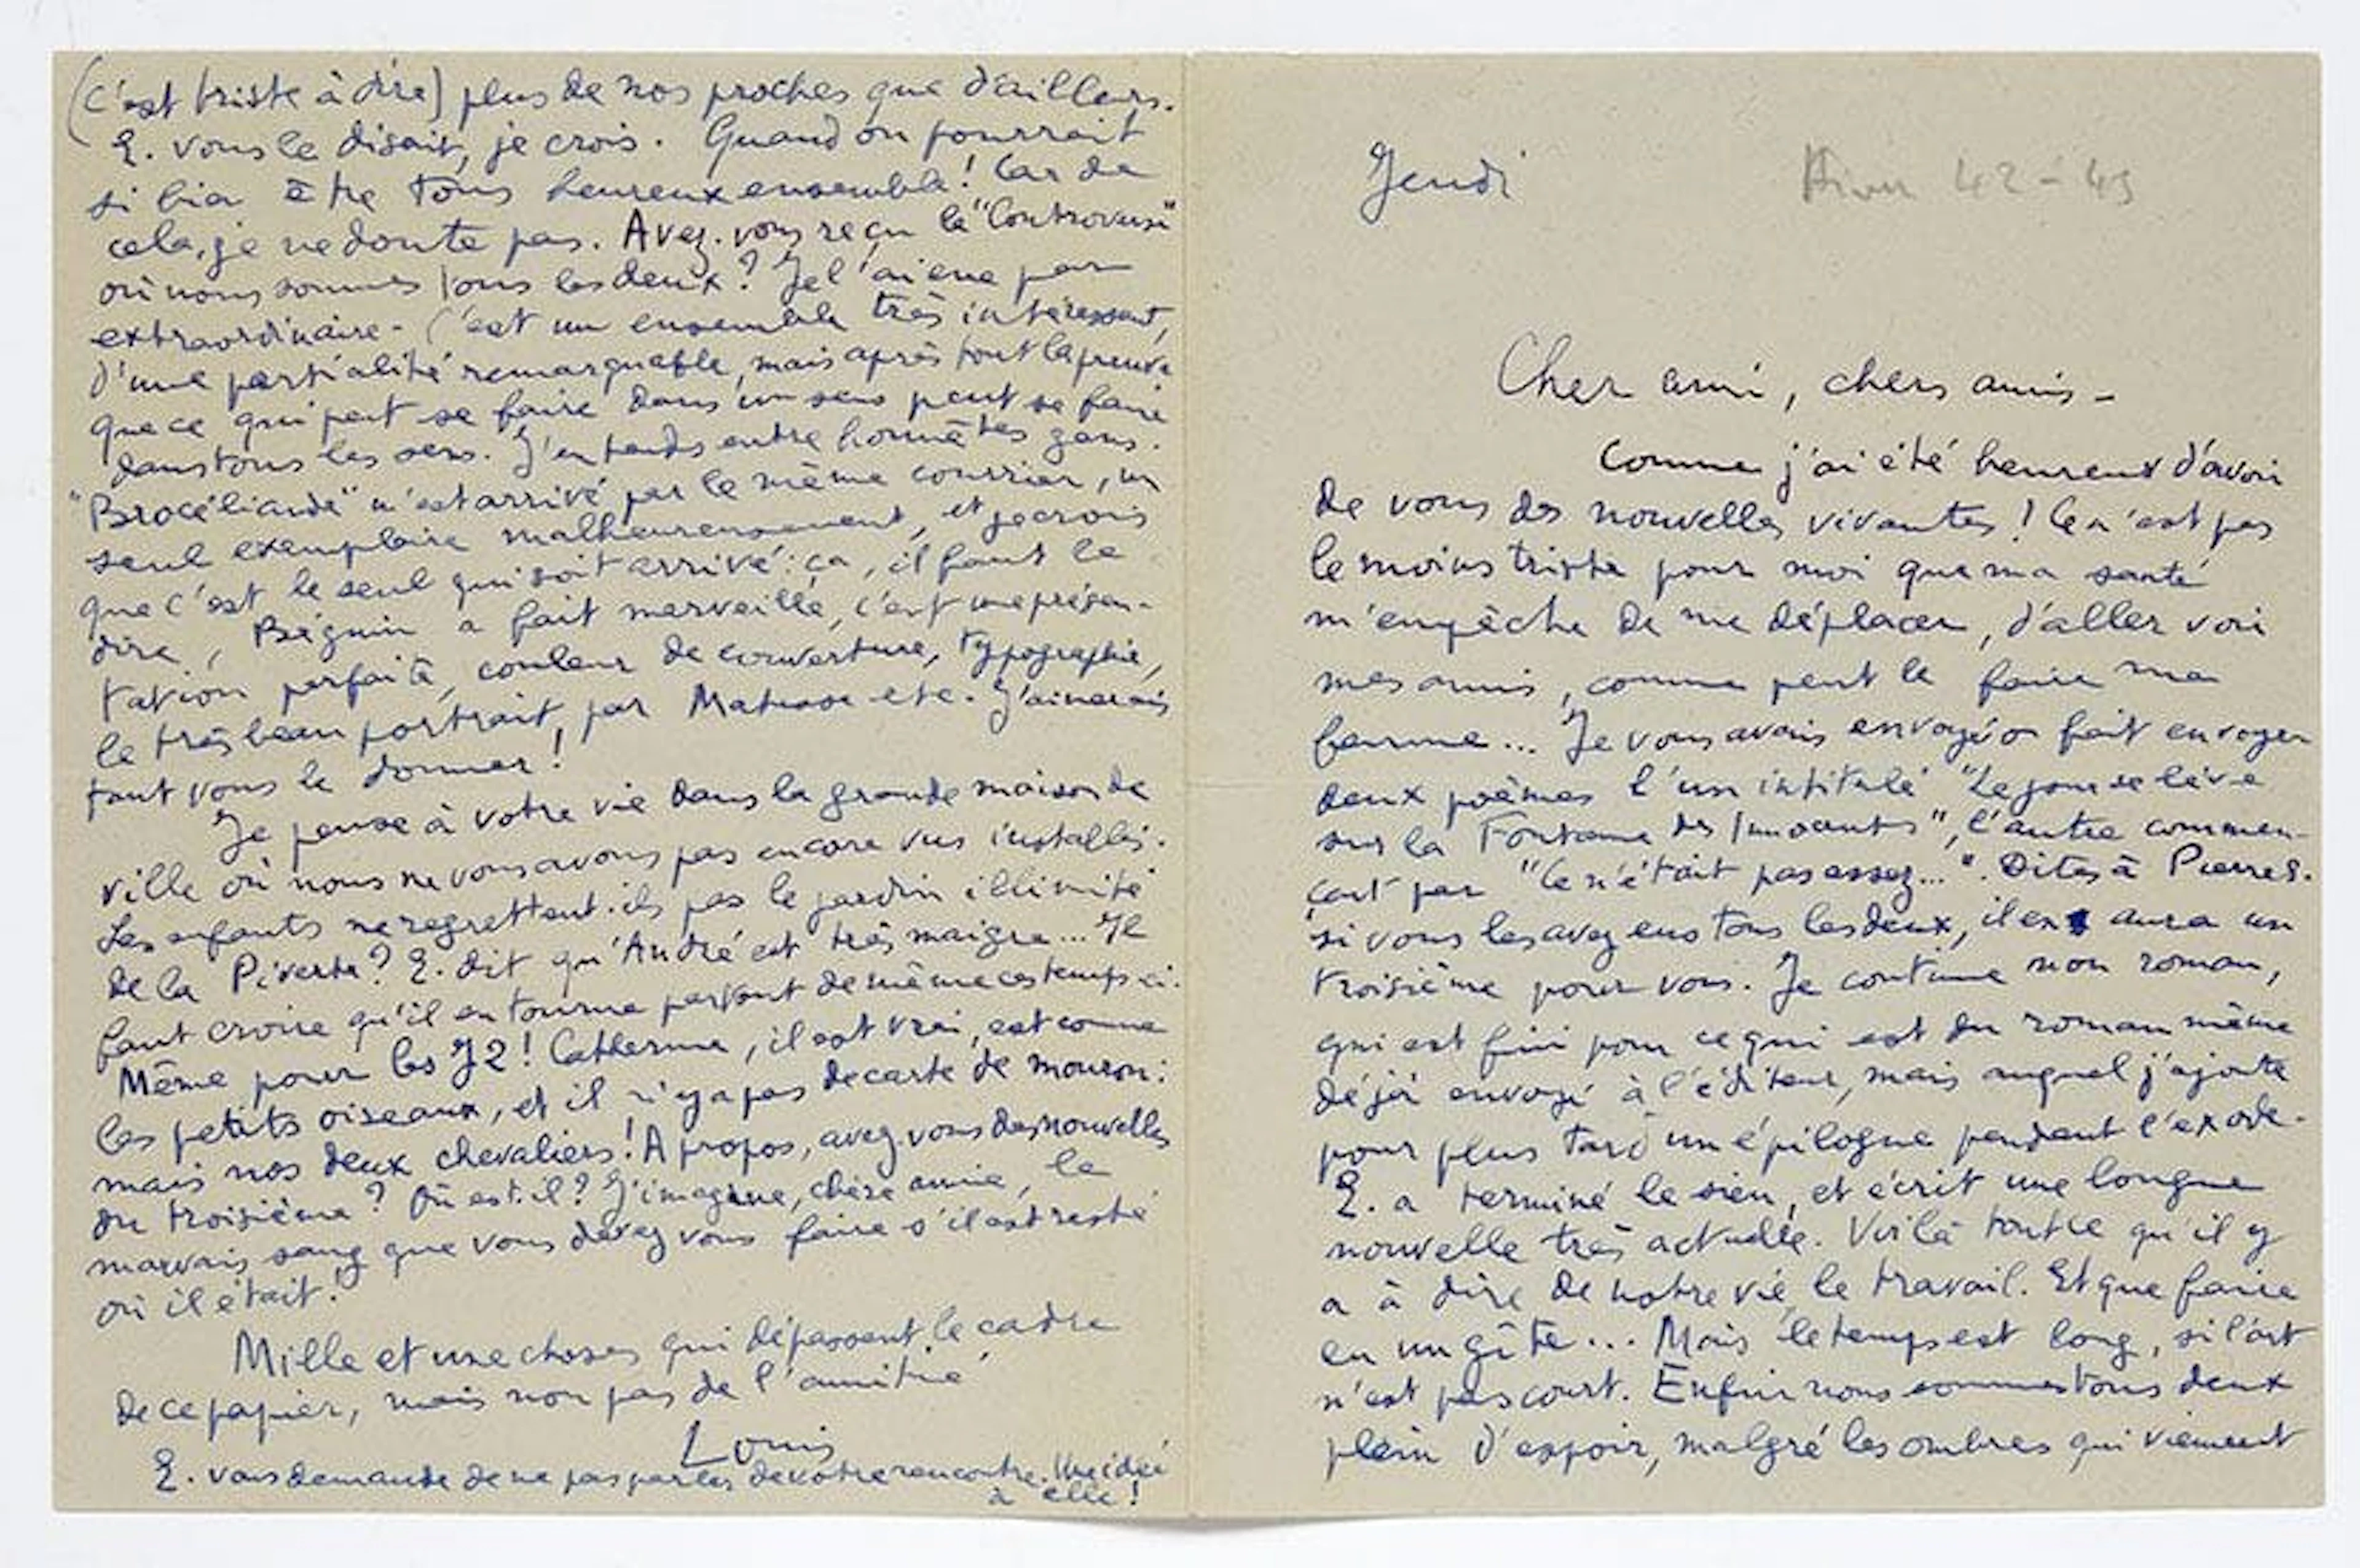 Jeudi
Hiver 42-43
Cher ami, chers amis –
Comme j'ai été heureux d'avoir
de vous des nouvelles vivantes ! Ce n'est pas
le moins triste pour moi que ma santé
m'empêche de me déplacer, d'aller voir
mes amis, comme peut le faire ma
femme... Je vous avais envoyé ou fait envoyer
deux poèmes l'un intitulé "Le jour se lève
sur la Fontaine des Innocents", l'autre commen-
çant par "Ce n'était pas assez...". Dites à Pierre S.
si vous les avez eus tous les deux, il en aura un
troisième pour vous. Je continue mon roman,
qui est fini pour ce qui est du roman même
déjà envoyé à l'éditeur, mais auquel j'ajoute
pour plus tard un épilogue pendant l'exode.
E. a terminé le sien, et écrit une longue
nouvelle très actuelle. Voilà tout ce qu'il y
a à dire de notre vie, le travail. Et que faire
en un gîte... Mais le temps est long, si l'art
n'est pas court. Enfin nous sommes tous deux
plein d'espoir, malgré les ombres qui viennent
(c'est triste à dire) plus de nos proches que d'ailleurs.
E. vous le disait, je crois. Quand on pourrait
si bien être tous heureux ensemble ! Car de
cela, je ne doute pas. Avez-vous reçu le "Controverse"
où nous sommes tous les deux ? Je l'ai eue par
extraordinaire. C'est un ensemble très intéressant,
d'une partialité remarquable, mais après tout la preuve
que ce qui peut se faire dans un sens peut se faire
dans tous les sens. J'entends entre honnêtes gens.
"Brocéliande" m'est arrivé par le même courrier, un
seul exemplaire malheureusement, et je crois
que c'est le seul qui soit arrivé : ça, il faut le
dire, Béguin a fait merveille, c'est une présen-
tation parfaite, couleur de couverture, typographie,
le très beau portrait, par Matisse etc. J'aimerais
tant vous le donner !
Je pense à votre vie dans la grande maison de
ville où nous ne vous avons pas encore vus installés.
Les enfants ne regrettent-ils pas le jardin illimité
de la Piverte ? E. dit qu'André est très maigre... Il
faut croire qu'il en tourne partout de même ces temps-ci.
Même pour les J2 ! Catherine, il est vrai, est comme
les petits oiseaux, et il n'y a pas de carte de mouron :
mais nos deux chevaliers ! A propos, avez-vous des nouvelles
du troisième ? Où est-il ? J'imagine, chère amie, le
mauvais sang que vous devez vous faire s'il est resté
où il était !
Mille et une choses qui dépassent le cadre
de ce papier, mais non pas de l'amitié
Louis
E. vous demande de ne pas parler de votre rencontre. Une idée
à elle !